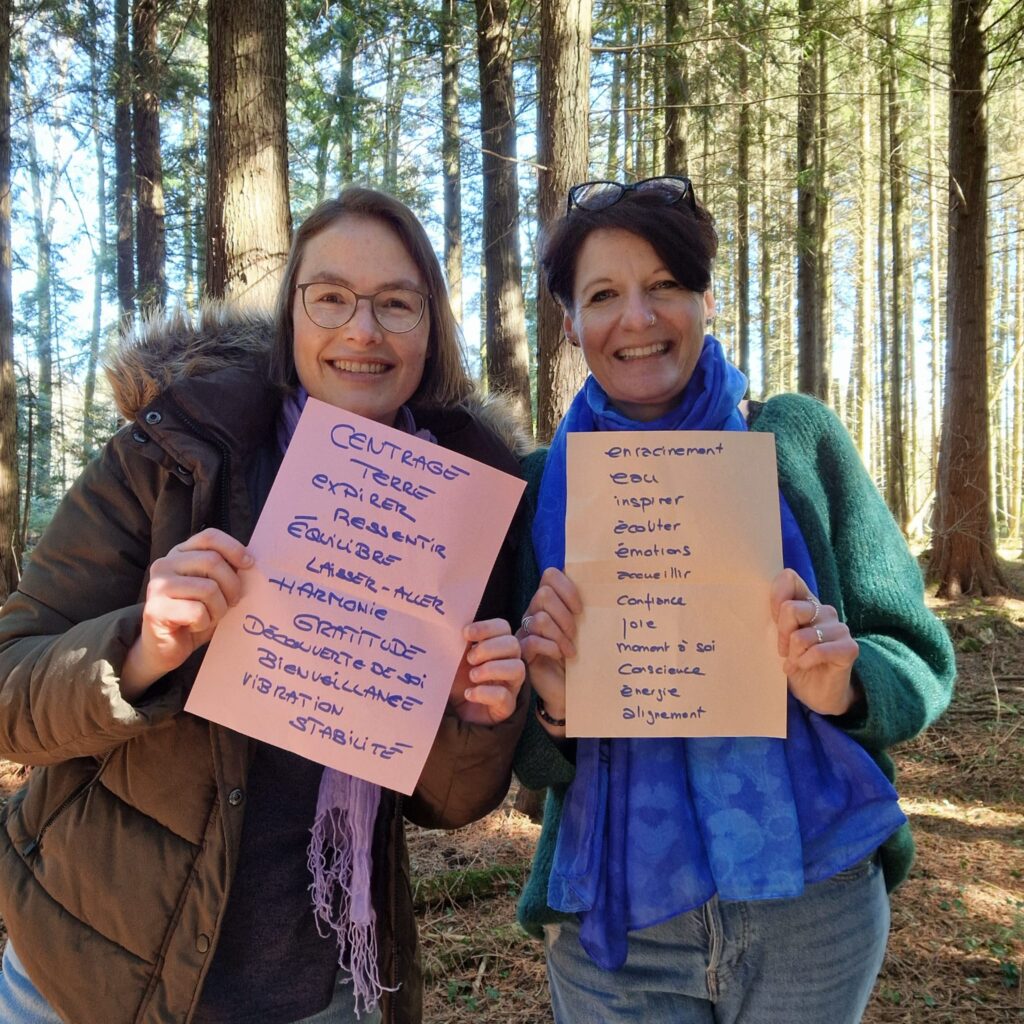 CENTRAGE
TERRE
EXPIRER
RESSENTIR
ÉQUILIBRE
LAISSER-ALLER
HARMONIE
GRATITUDE
DÉCOUVERTE DE SOI
BIENVEILLANCE
VIBRATION
STABILITÉ
enracinement
eau
inspirer
écouter
émotions
accueillir
confiance
joie
moment à soi
conscience
énergie
alignement